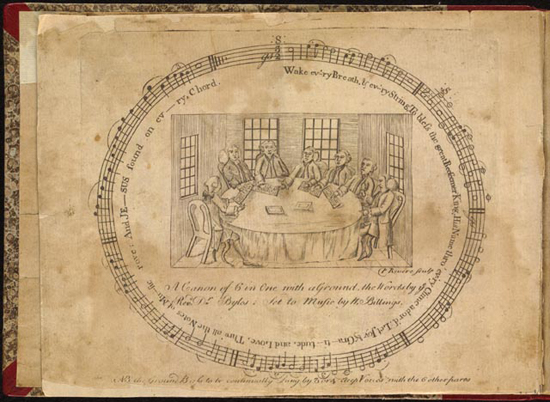 Wake ev'ry Breath, & ev'ry String, To bless the great Redeemer King, His Name thro' ev'ry Clime ador'd, Let Joy & Gra—ti—tude, and Love, Thro' all the Notes of Music rove And JE—SUS sound on ev—ry, Chord.
P. Revere Sculp
A Canon of 6 in One with a Ground, the Words by ye
Revd. Dr. Byles, Set to Music by W. Billings.
NB. the Ground Bass to be continually Sung by 3 or 4 deep Voices with the 6 other parts